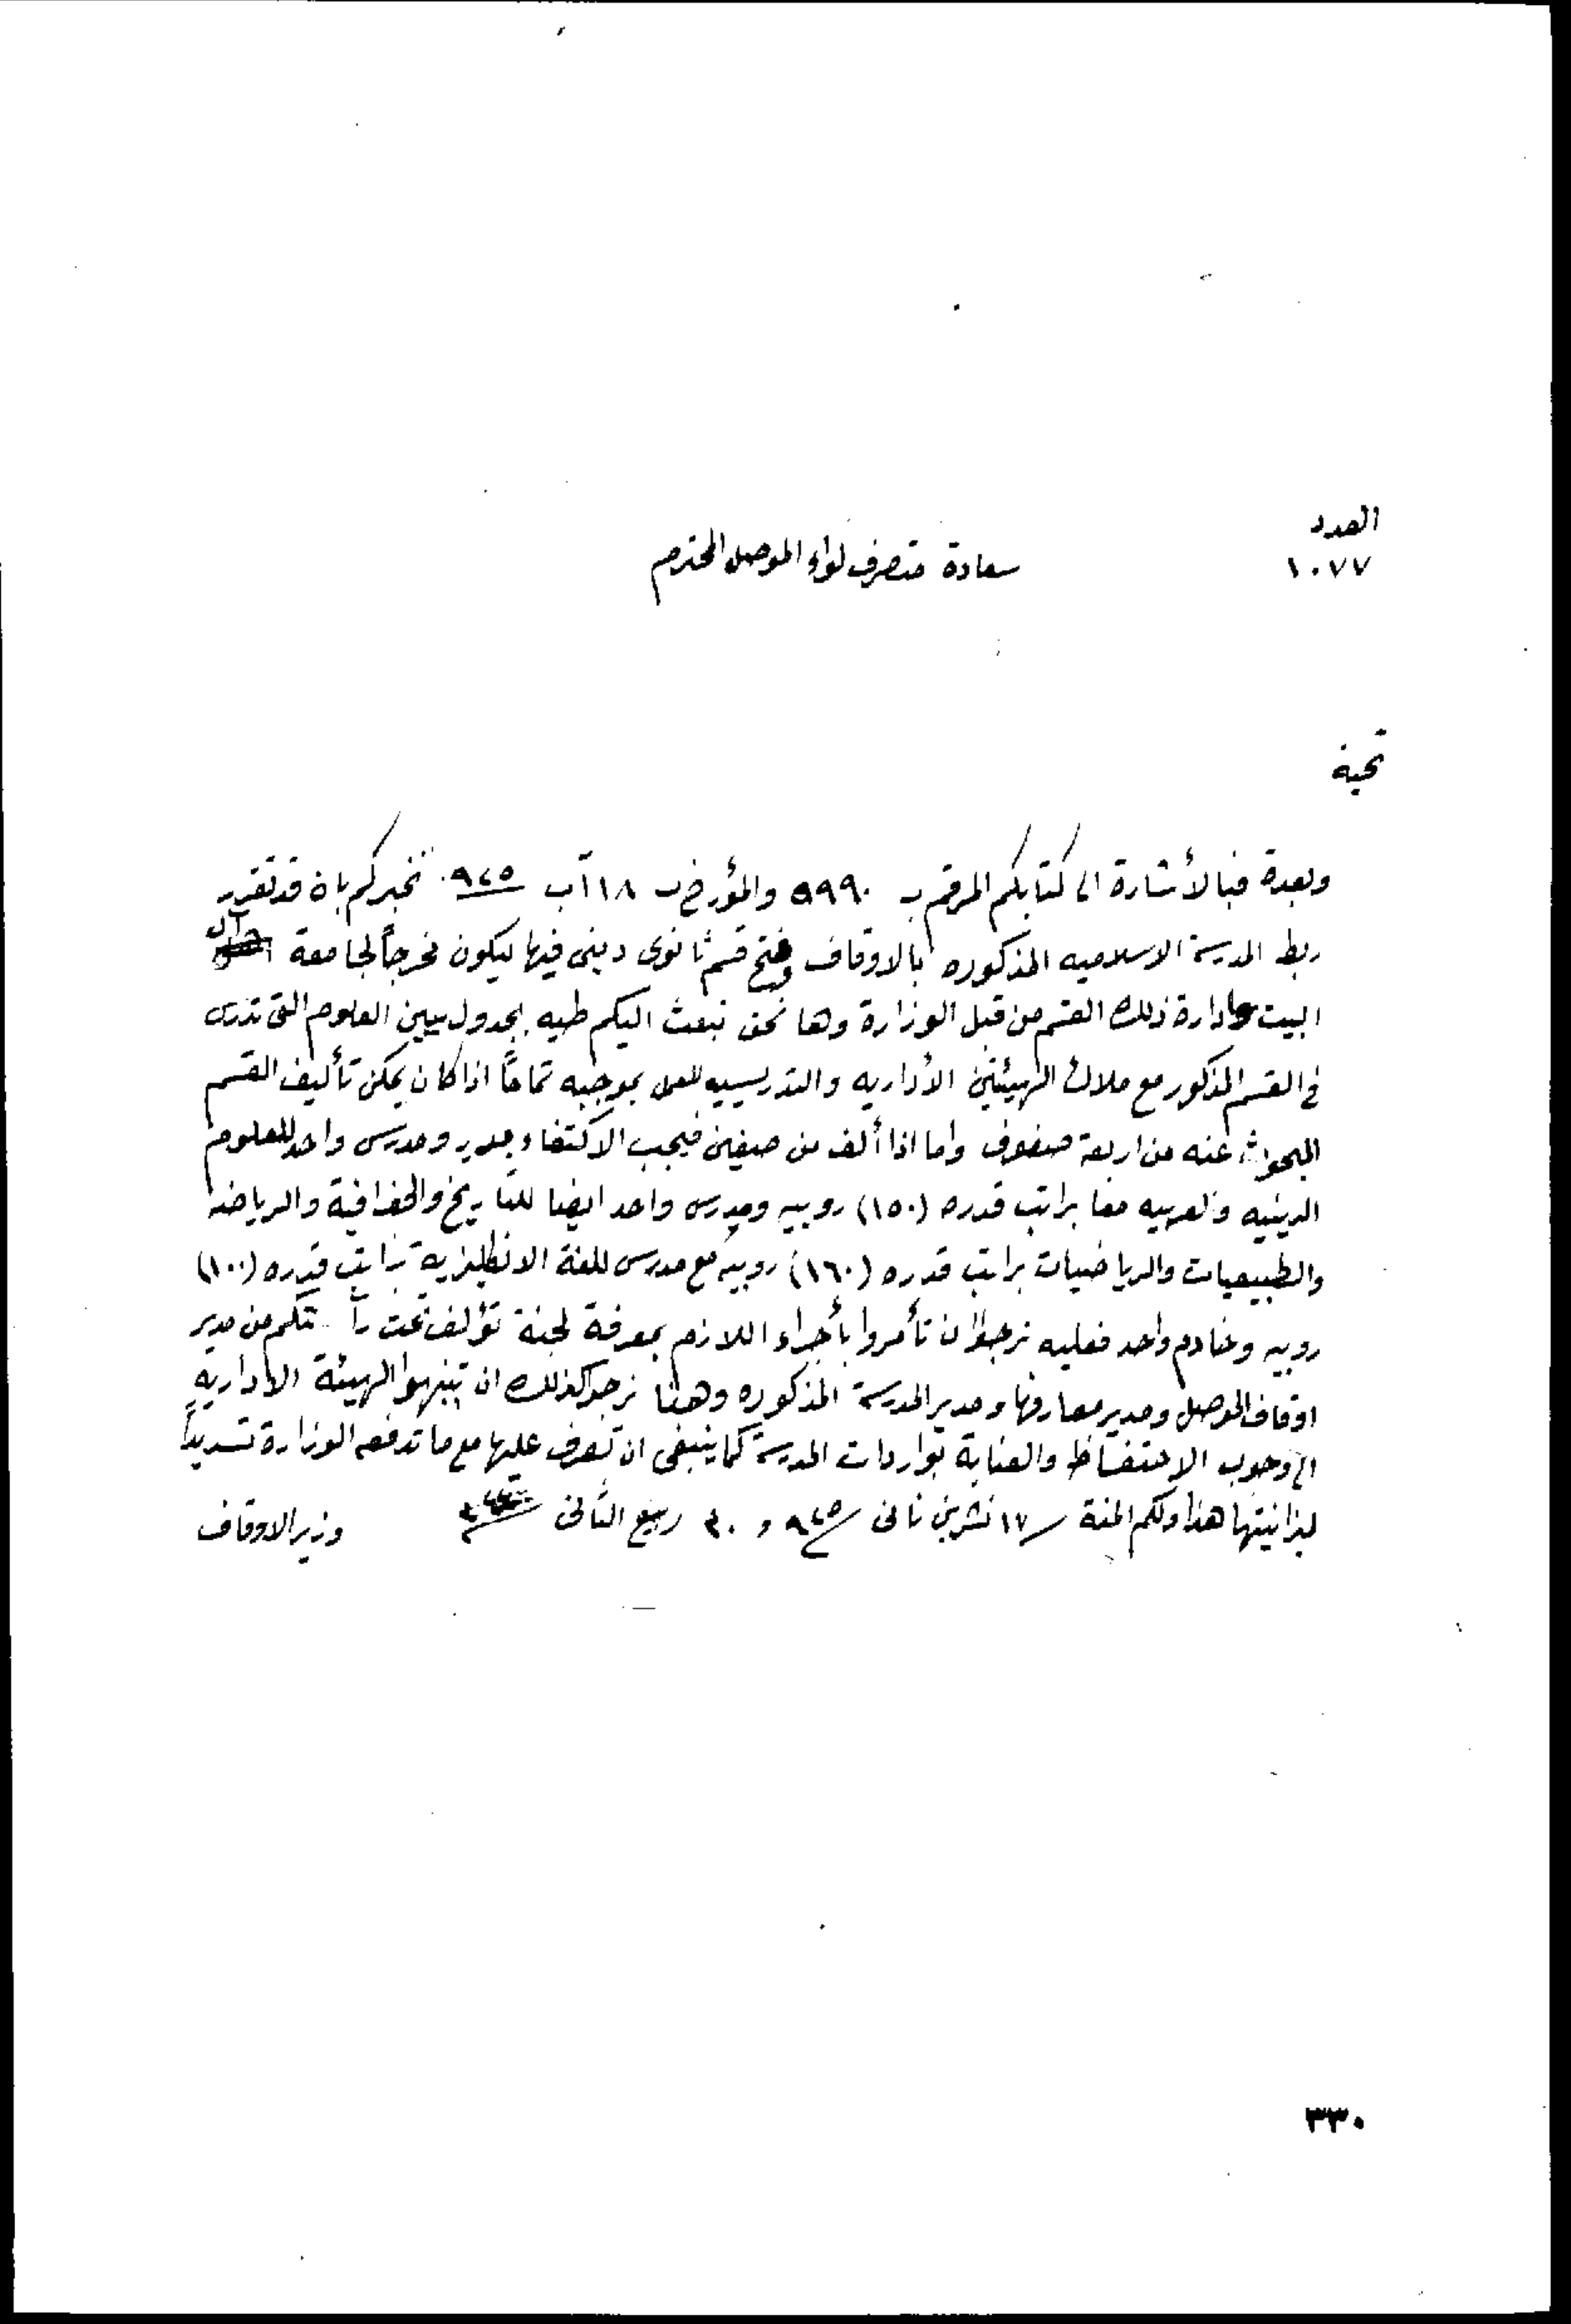 العدد
١٠٧٧
سعادة متصرف لواء الموصل المحترم
تحية
وبعده فبالأشارة الى كتابكم المرقم بـ ٥٩٩٠ والمؤرخ بـ ١٨ آب ٩٢٥ نخبركم بان قد تقرر
ربط المدرسة الاسلاميه المذكوره بالاوقاف وفتح قسم ثانوى دينى فيها ليكون مخرجاً لجامعة آل
البيت وادارة ذلك القسم من قبل الوزارة وها نحن نبعث اليكم طيه بجدول يبين العلوم التى تدرس
فى القسم المذكور مع ملاك الهيئتين الأداريه والتدريسيه للعمل بموجبه تماماً اذا كان يمكن تأليف القسم
المبحوث عنه من اربعة صفوف واما اذا ألف من صفين فيجب الاكتفاء بمدير ومدرس واحد للعلوم
الدينيه والعربيه معا براتب قدره (١٥٠) روبيه ومدرس واحد ايضا للتاريخ والجغرافية والرياضه
والطبيعيات والرياضيات براتب قدره (١٦٠) روبيه مع مدرس للغة الانكليزية براتب قدره (١٠٠)
روبيه وخادم واحد فعليه نرجوا ان تأمروا بأجراء اللازم بمعرفة لجنة تؤلف تحت رآستكم من مدير
اوقاف الموصل ومدير معارفها ومدير المدرسة المذكوره وهنا نرجو كذلك ان تنبهوا الهيئة الاداريه
الى وجوب الاحتفاظ والعناية بواردات المدرسة كما ينبغى ان تصرف عليها مع ما تدفعه الوزارة تسديداً
لميزانيتها هذا ولكم المنة ١٧ تشرين ثانى ٩٢٥ و ٣٠ ربيع الثانى وزير الاوقاف
٣٣٠